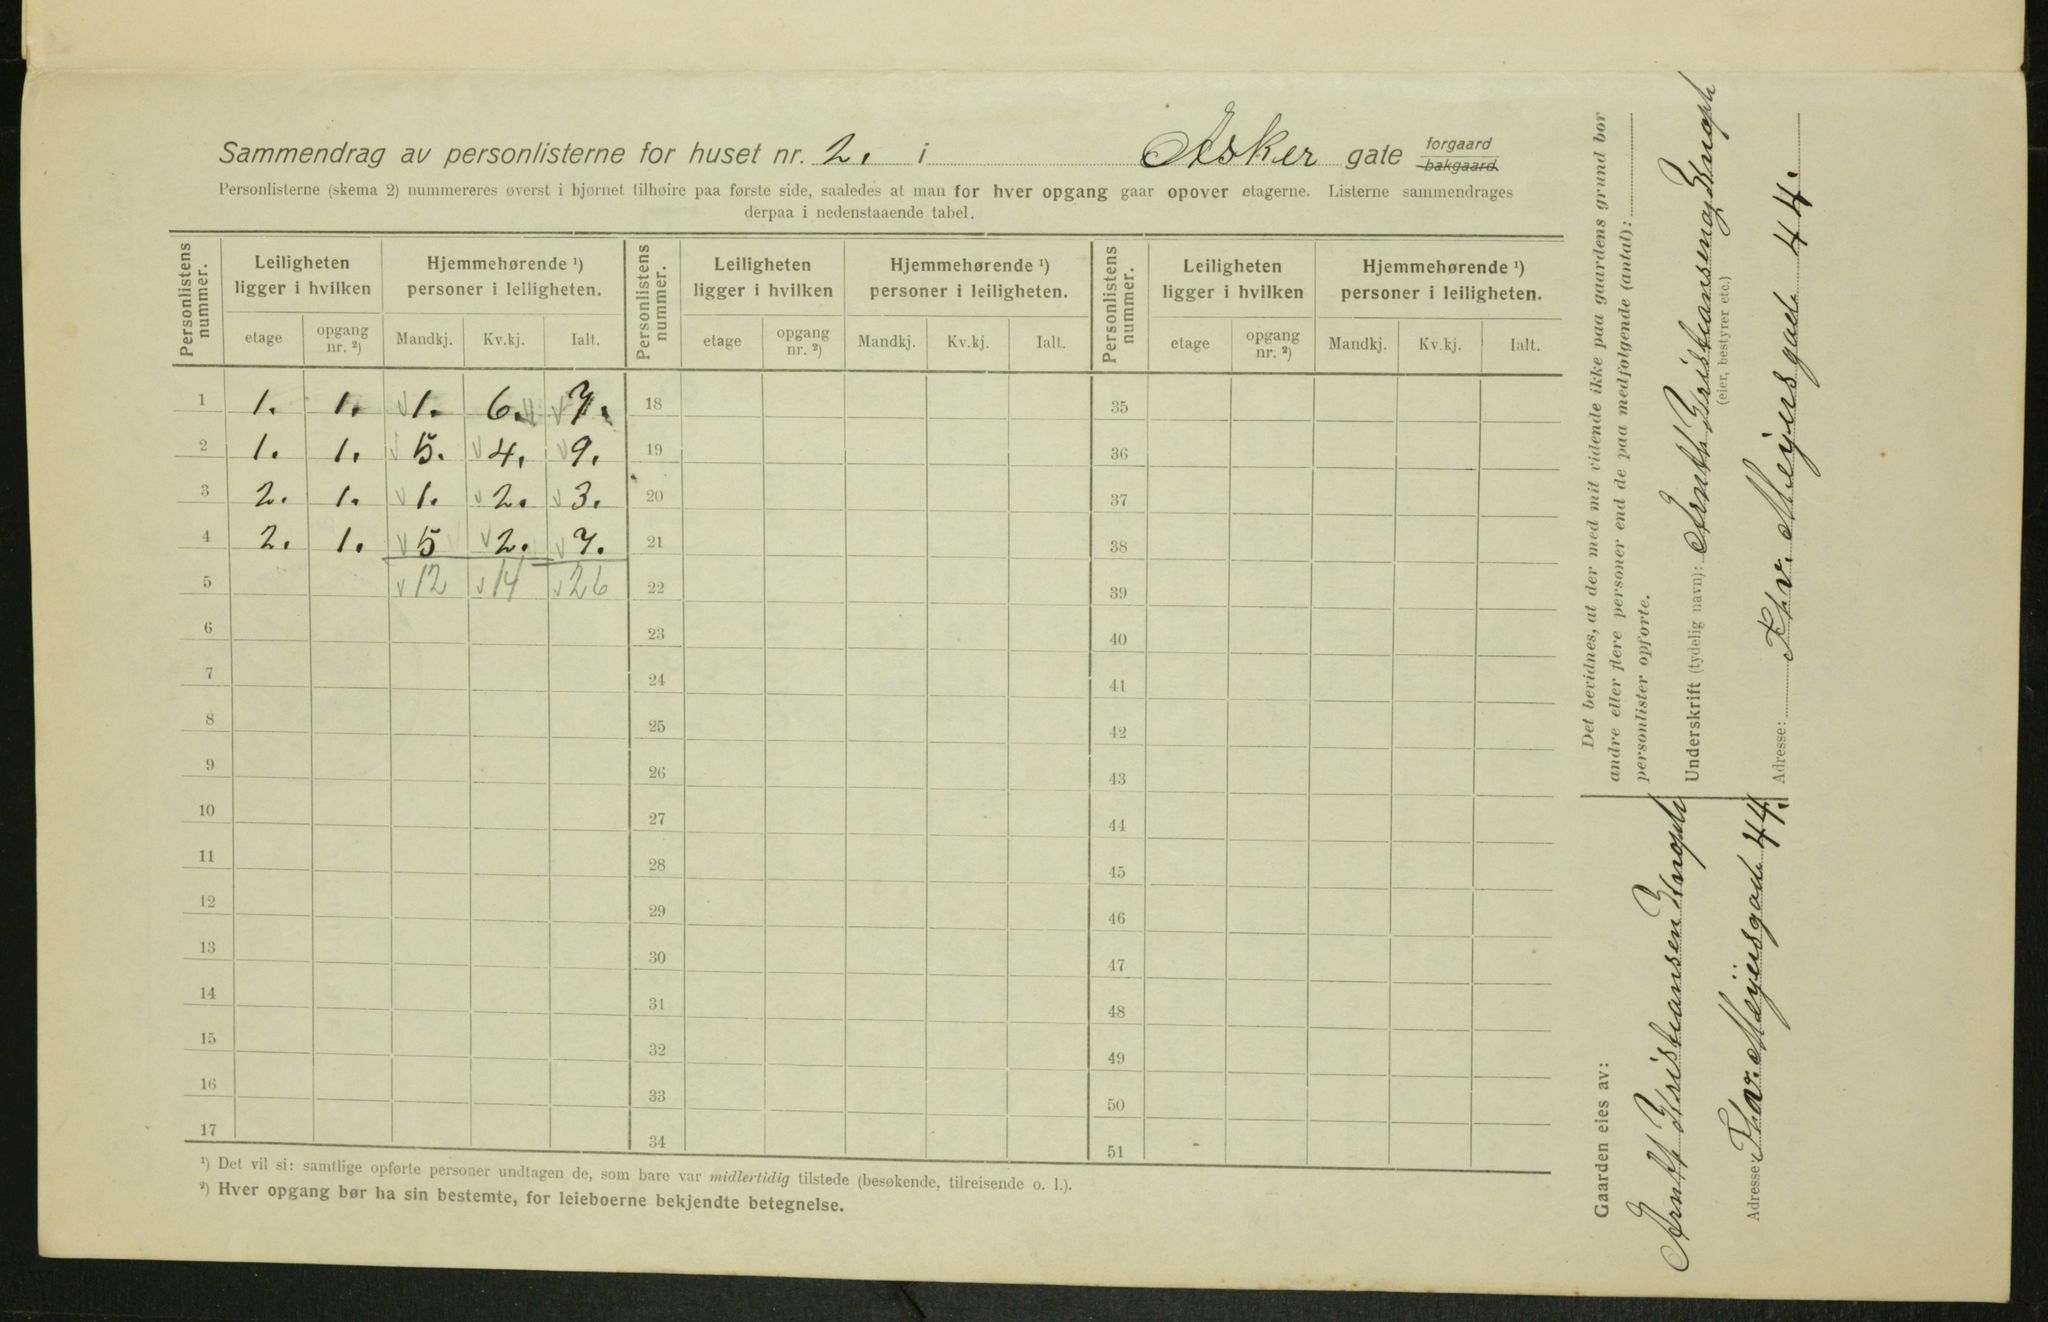 Sammendrag av personlisterne for huset nr. 2. i Asker gate forgaard bakgaard.
Personlisterne (skema 2) nummereres øverst i hjørnet tilhøire paa første side, saaledes at man for hver opgang gaar opover etagerne. Listerne sammendrages
derpaa i nedenstaaende tabel.
Personlistens nummer. Leiligheten ligger i hvilken Hjemmehørende ¹) personer i leiligheten. Personlistens nummer. Leiligheten ligger i hvilken Hjemmehørende ¹) personer i leiligheten. Personlistens nummer. Leiligheten ligger i hvilken Hjemmehørende ¹) personer i leiligheten.
etage opgang nr. ²) Mandkj. Kv.kj. Ialt. etage opgang nr. ²) Mandkj. Kv.kj. Ialt. etage opgang nr. ²) Mandkj. Kv.kj. Ialt.
1 1. 1. 1. 6. 7. 18 35
2 1. 1. 5. 4. 9. 19 36
3 2. 1. 1. 2. 3. 20 37
4 2. 1. 5 2. 7. 21 38
5 12 14 26 22 39
6 23 40
7 24 41
8 25 42
9 26 43
10 27 44
11 28 45
12 29 46
13 30 47
14 31 48
15 32 49
16 33 50
17 34 51
¹) Det vil si: samtlige opførte personer undtagen de, som bare var midlertidig tilstede (besøkende, tilreisende o. l.).
²) Hver opgang bør ha sin bestemte, for leieboerne bekjendte betegnelse.
Det bevidnes, at der med mit vidende ikke paa gaardens grund bor
andre eller flere personer end de paa medfølgende (antal):
personlister opførte.
Underskrift (tydelig navn): Arntt Kristiansen
(eier, bestyrer etc.)
Adresse: Thv. Meyersgade 44.
Gaarden eies av:
Arntt Kristiansen
Adresse: Thv. Meyersgade 44.